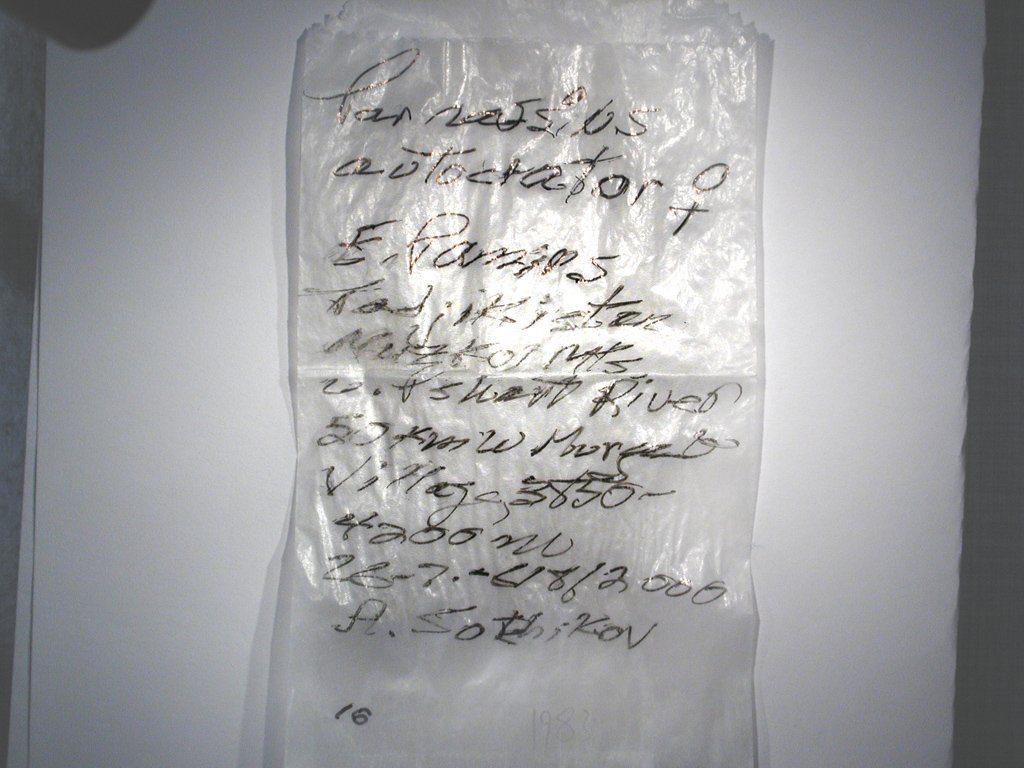 Parnassius
autocrator ♀
E. Pamirs
Tadjikistan
Muzkol Mts
v. Pshart River
50 km W Murgab
Village, 3850-
4200 m
26-7.-4/8/2000
A. Sotnikov
16
198